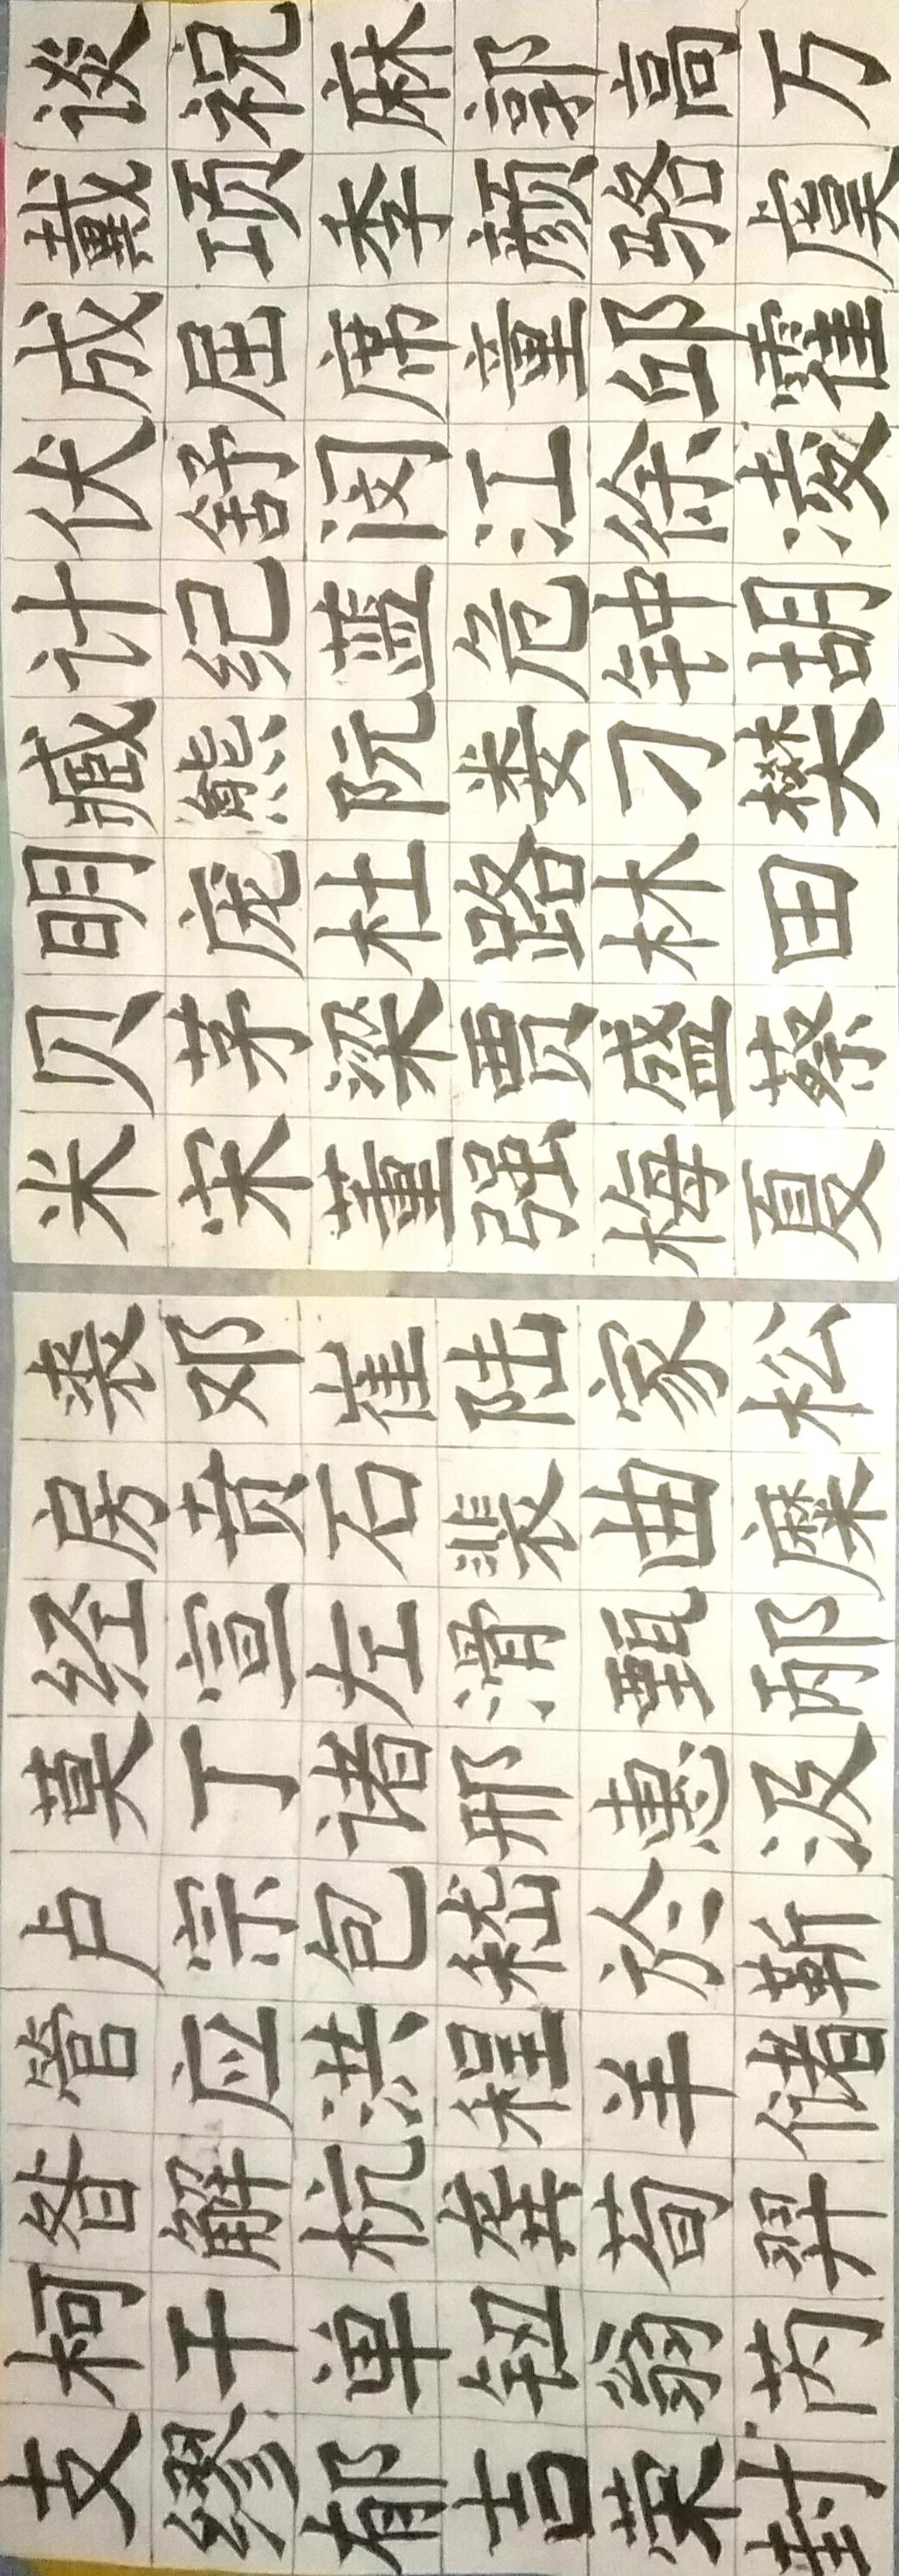 米贝明臧计伏成戴谈
宋茅庞熊纪舒屈项祝
董梁杜阮蓝闵席季麻
强贾路娄危江童颜郭
梅盛林刁钟徐邱骆高
夏蔡田樊胡凌霍虞万
支柯昝管卢莫经房裘
缪干解应宗丁宣贲邓
郁单杭洪包诸左石崔
吉钮龚程嵇邢滑裴陆
荣翁荀羊於惠甄曲家
封芮羿储靳汲邴糜松